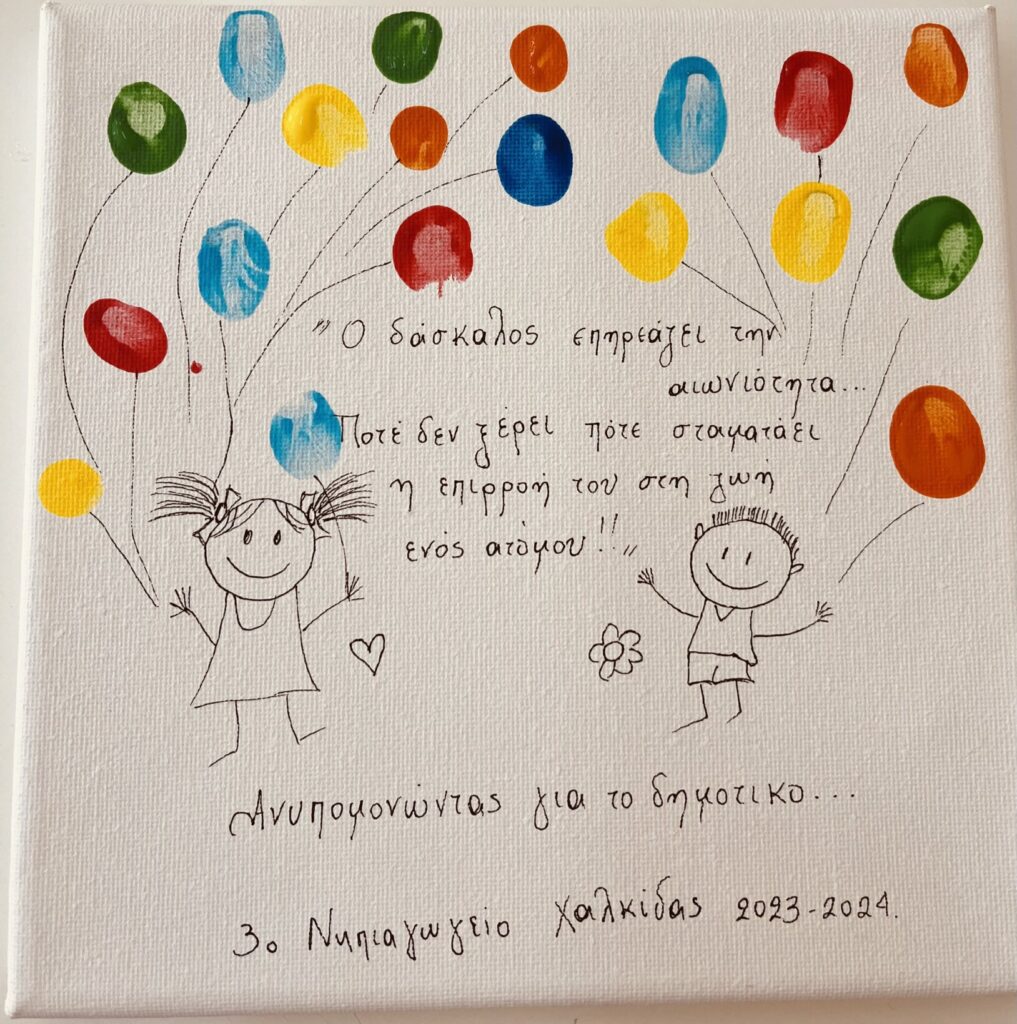 "Ο δάσκαλος επηρεάζει την
αιωνιότητα...
Ποτέ δεν ξέρει πότε σταματάει
η επιρροή του στη ζωή
ενός ατόμου!!"
Ανυπομονώντας για το δημοτικο...
3ο Νηπιαγωγείο Χαλκίδας 2023-2024.